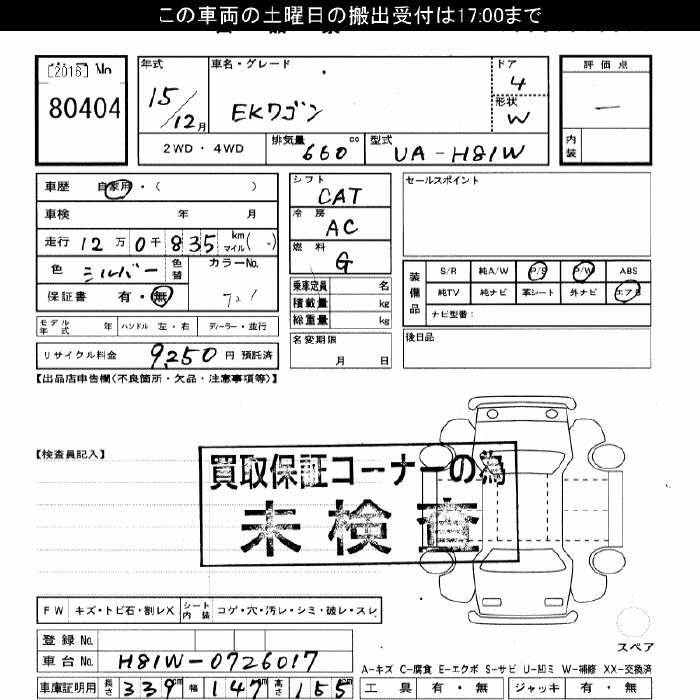 この車両の土曜日の搬出受付は17:00まで
[2016] No
80404
年式
15/12月
車名・グレード
EKワゴン
ドア
4
形状
W
評価点
—
内装
2WD・4WD
排気量 660 cc
型式 UA-H81W
車歴 自家用・( )
車検 年 月
走行 12万0千835 km マイル( )
色 シルバー 色替
カラーNo.
保証書 有・無
モデル年式 年 ハンドル 左・右 ディーラー・並行
リサイクル料金 9,250円 預託済
シフト
CAT
冷房
AC
燃料
G
乗車定員 名
積載量 kg
総重量 kg
名変期限
月 日
セールスポイント
装備品
S/R 純A/W P/S P/W ABS
純TV 純ナビ 革シート 外ナビ エアB
ナビ型番:
後日品
【出品店申告欄(不良箇所・欠品・注意事項等)】
【検査員記入】
買取保証コーナーの為
未検査
FW キズ・トビ石・割レX シート内装 コゲ・穴・汚レ・シミ・破レ・スレ
登録No.
車台No. H81W-0726017
車庫証明用 長さ 339cm 幅 147cm 高さ 155cm
スペア
A-キズ C-腐食 E-エクボ S-サビ U-凹ミ W-補修 XX-交換済
工具 有・無 ジャッキ 有・無